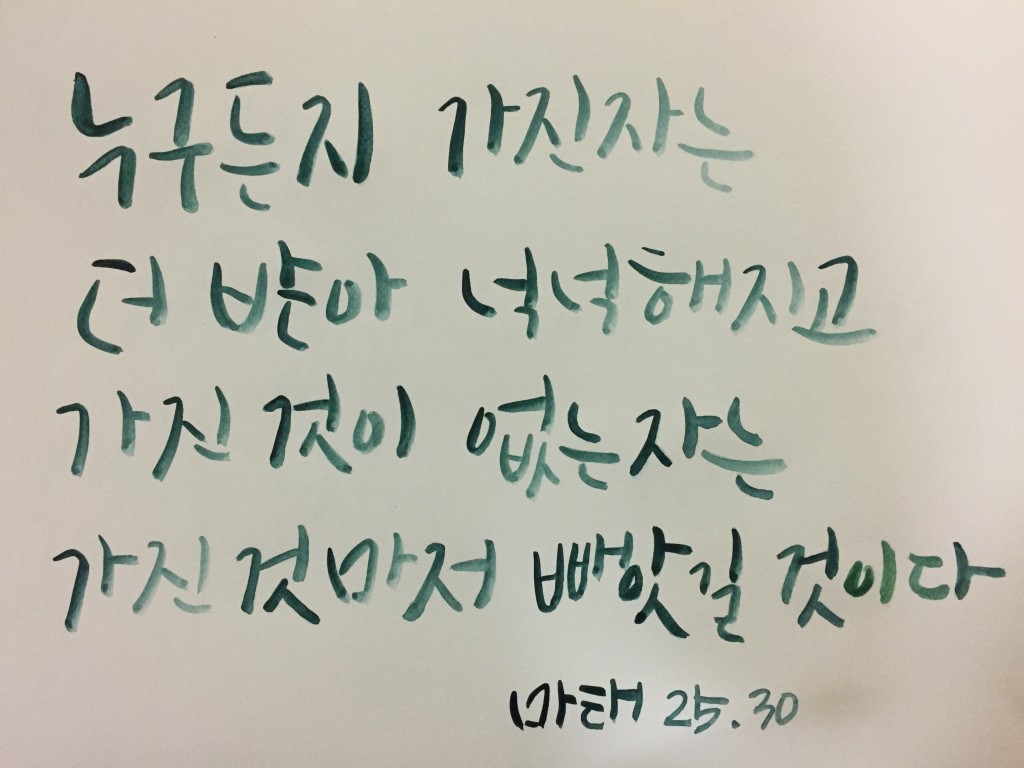 누구든지 가진자는
더 받아 넉넉해지고
가진 것이 없는 자는
가진 것마저 빼앗길 것이다
마태 25.30